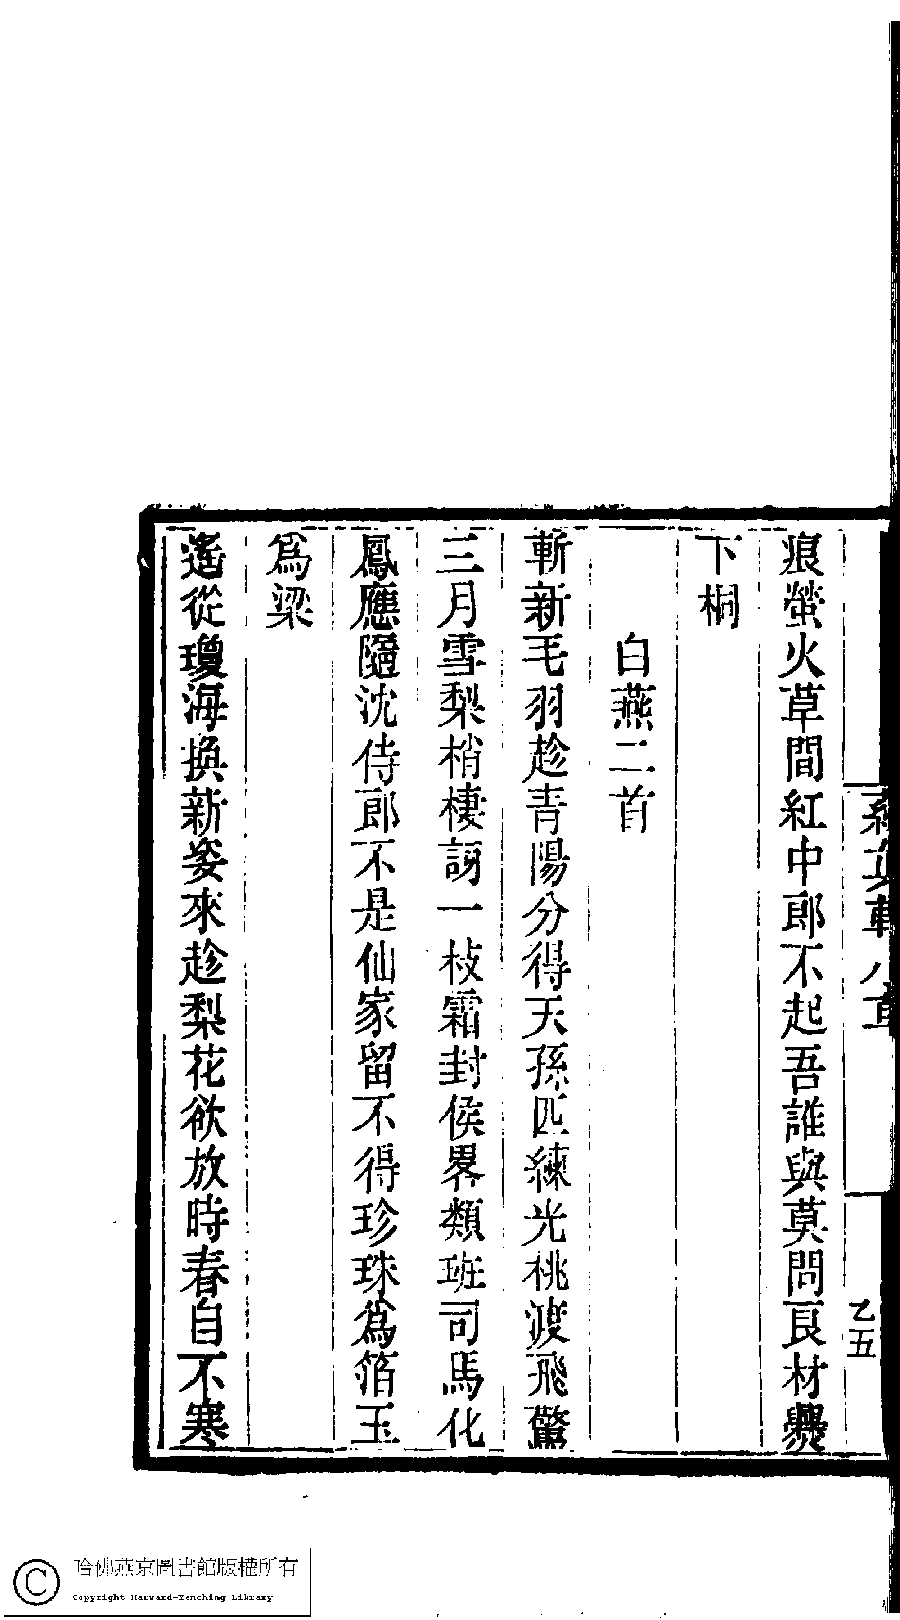 乙五
痕螢火草間紅中郎不起吾誰與莫問良材爨
下桐
白燕二首
斬新毛羽趁青陽分得天孫匹練光桃渡飛驚
三月雪梨梢棲訝一枝霜封侯畧類班司馬化
鳳應隨沈侍郎不是仙家留不得珍珠爲箔玉
爲梁
遙從瓊海換新姿來趁梨花欲放時春自不寒
哈佛燕京圖書館版權所有
Copyright Harvard-Yenching Library